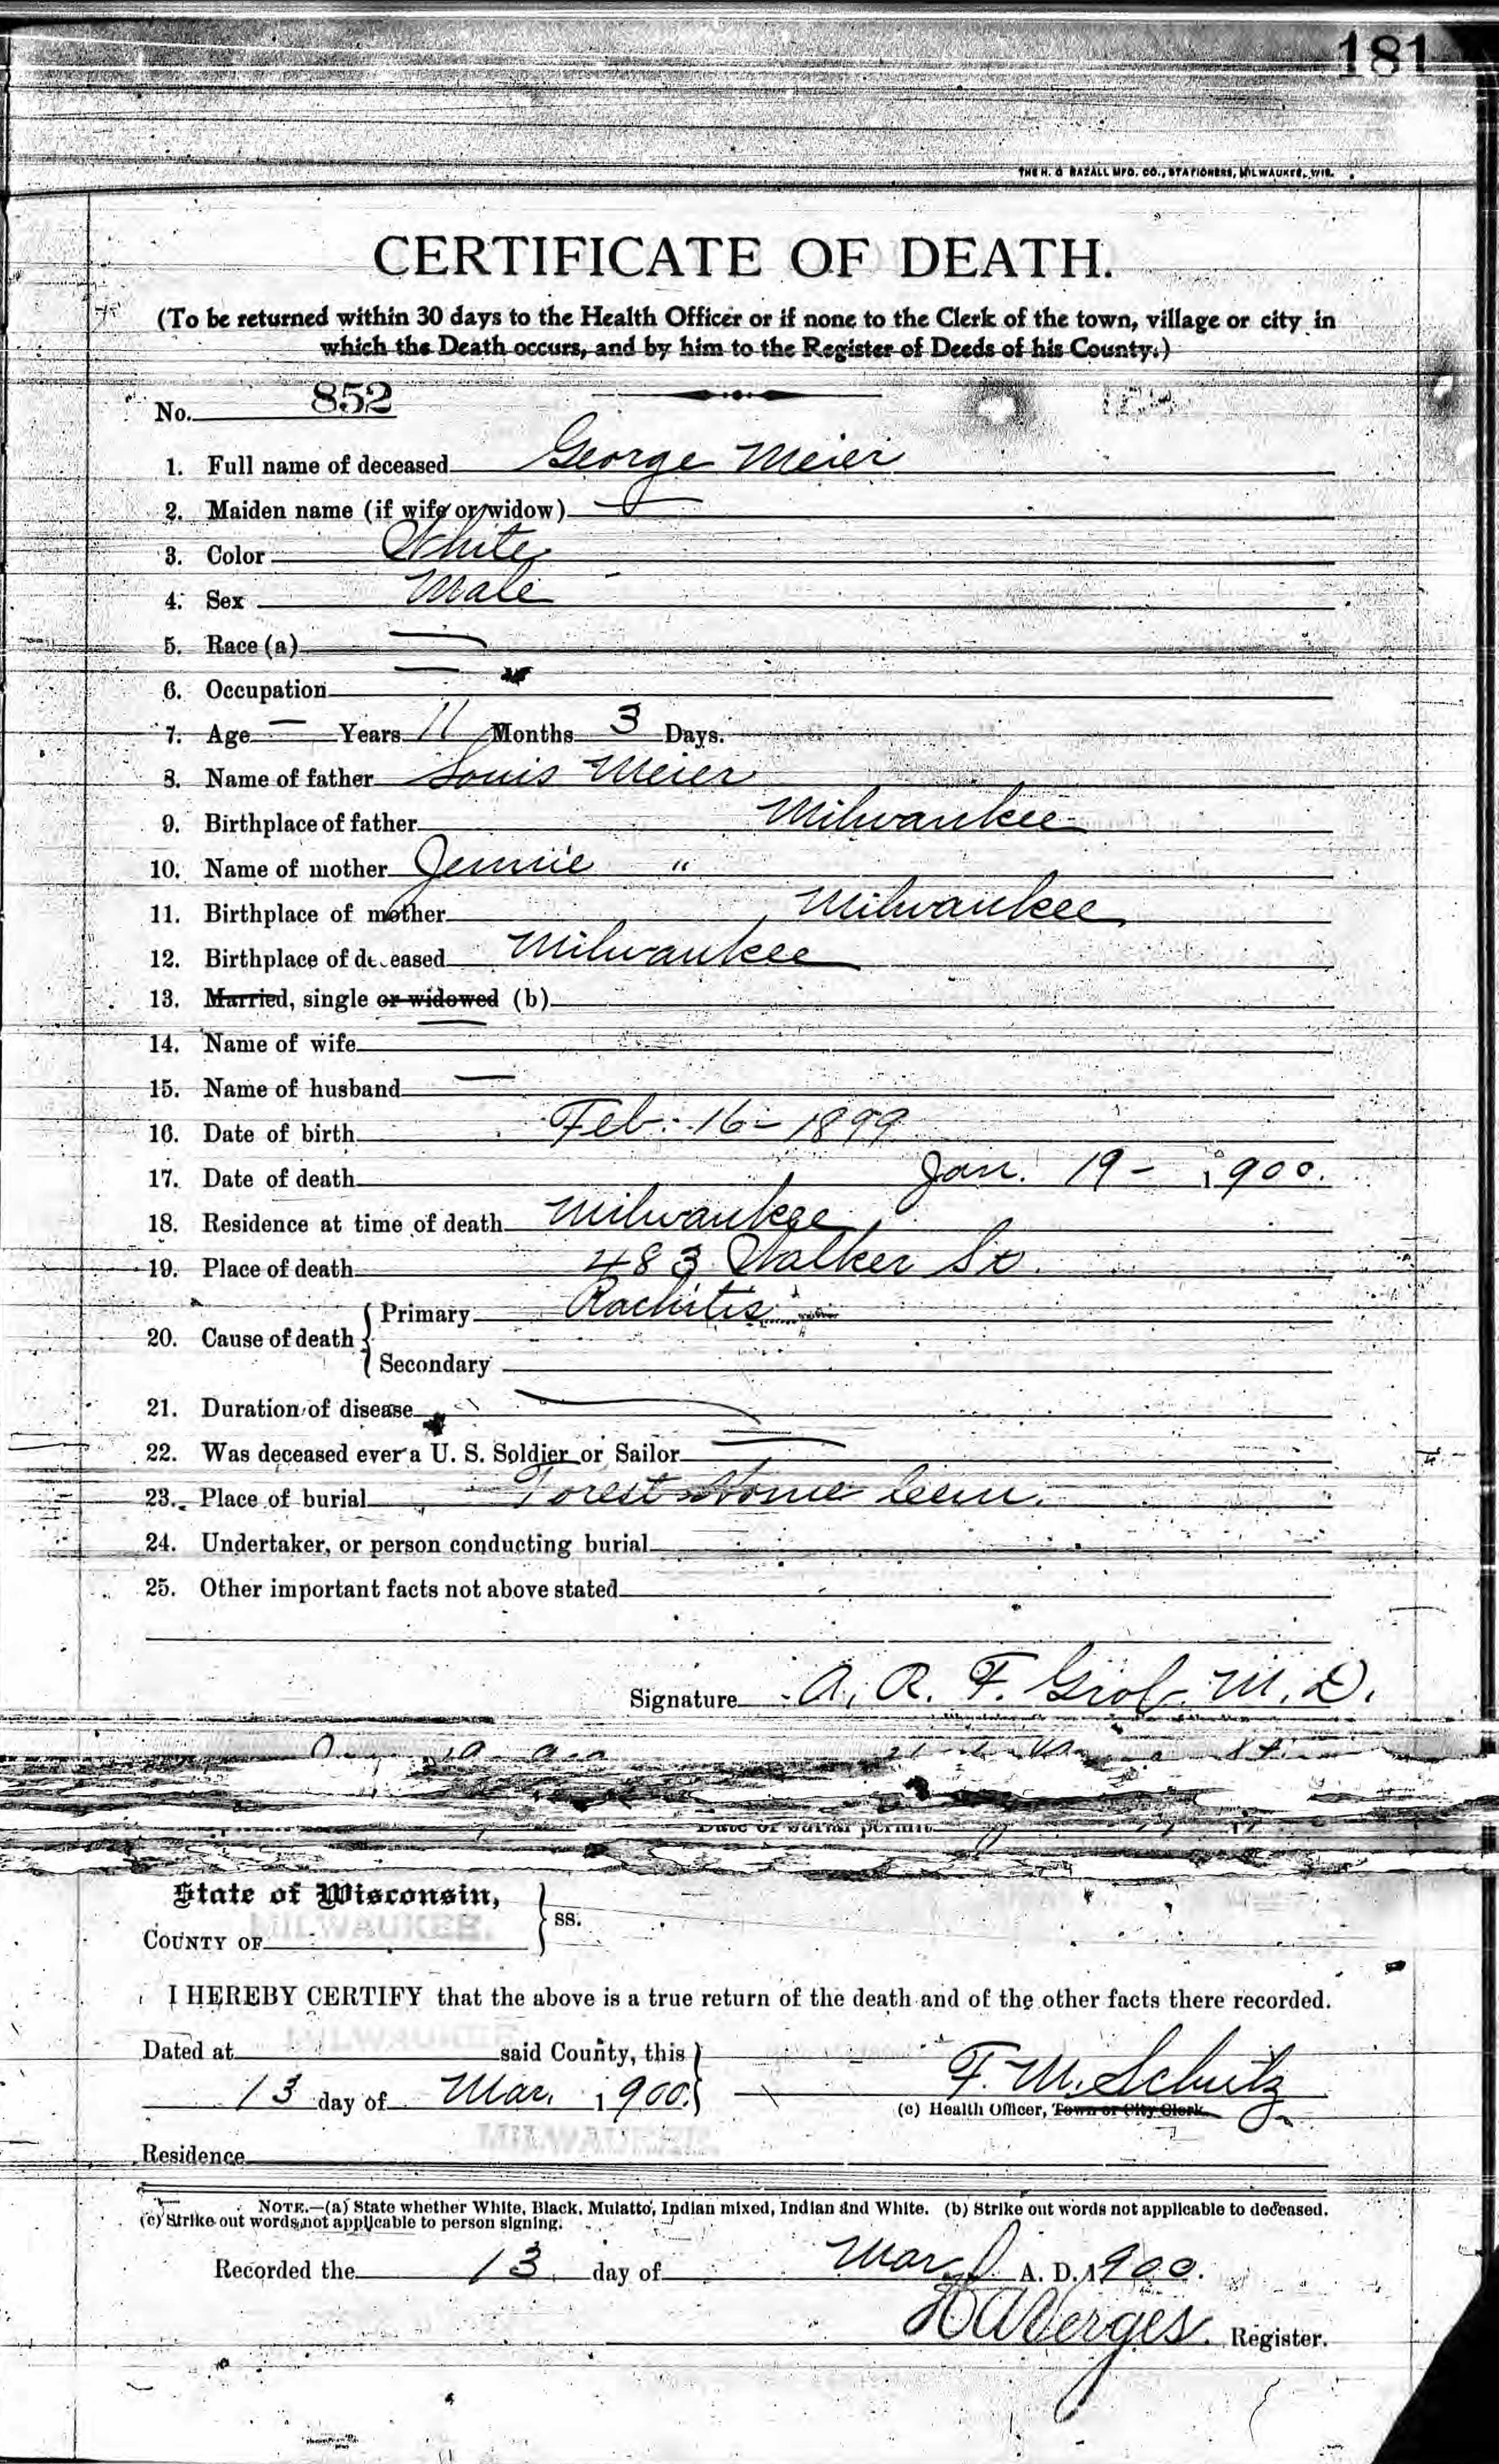 181
THE H. G. RAZALL MFG. CO., STATIONERS, MILWAUKEE, WIS.
CERTIFICATE OF DEATH.
(To be returned within 30 days to the Health Officer or if none to the Clerk of the town, village or city in
which the Death occurs, and by him to the Register of Deeds of his County.)
No. 852
1. Full name of deceased George Meier
2. Maiden name (if wife or widow) —
3. Color White
4. Sex Male
5. Race (a) —
6. Occupation —
7. Age — Years 11 Months 3 Days.
8. Name of father Louis Meier
9. Birthplace of father Milwaukee
10. Name of mother Jennie "
11. Birthplace of mother Milwaukee
12. Birthplace of deceased Milwaukee
13. Married, single or widowed (b)
14. Name of wife —
15. Name of husband —
16. Date of birth Feb. 16 - 1899
17. Date of death Jan. 19 - 1900.
18. Residence at time of death Milwaukee
19. Place of death 483 Walker St.
20. Cause of death { Primary Rachitis
Secondary
21. Duration of disease —
22. Was deceased ever a U. S. Soldier or Sailor —
23. Place of burial Forest Home Cem.
24. Undertaker, or person conducting burial
25. Other important facts not above stated
Signature A. R. F. Grob M. D.
Date of burial permit
State of Wisconsin, } ss.
COUNTY OF MILWAUKEE.
I HEREBY CERTIFY that the above is a true return of the death and of the other facts there recorded.
Dated at MILWAUKEE said County, this }
13 day of Mar. 1900. F. M. Schutz
(c) Health Officer, Town or City Clerk.
Residence MILWAUKEE.
NOTE.—(a) State whether White, Black, Mulatto, Indian mixed, Indian and White. (b) Strike out words not applicable to deceased.
(c) Strike out words not applicable to person signing.
Recorded the 13 day of Mar A. D. 1900.
Register.